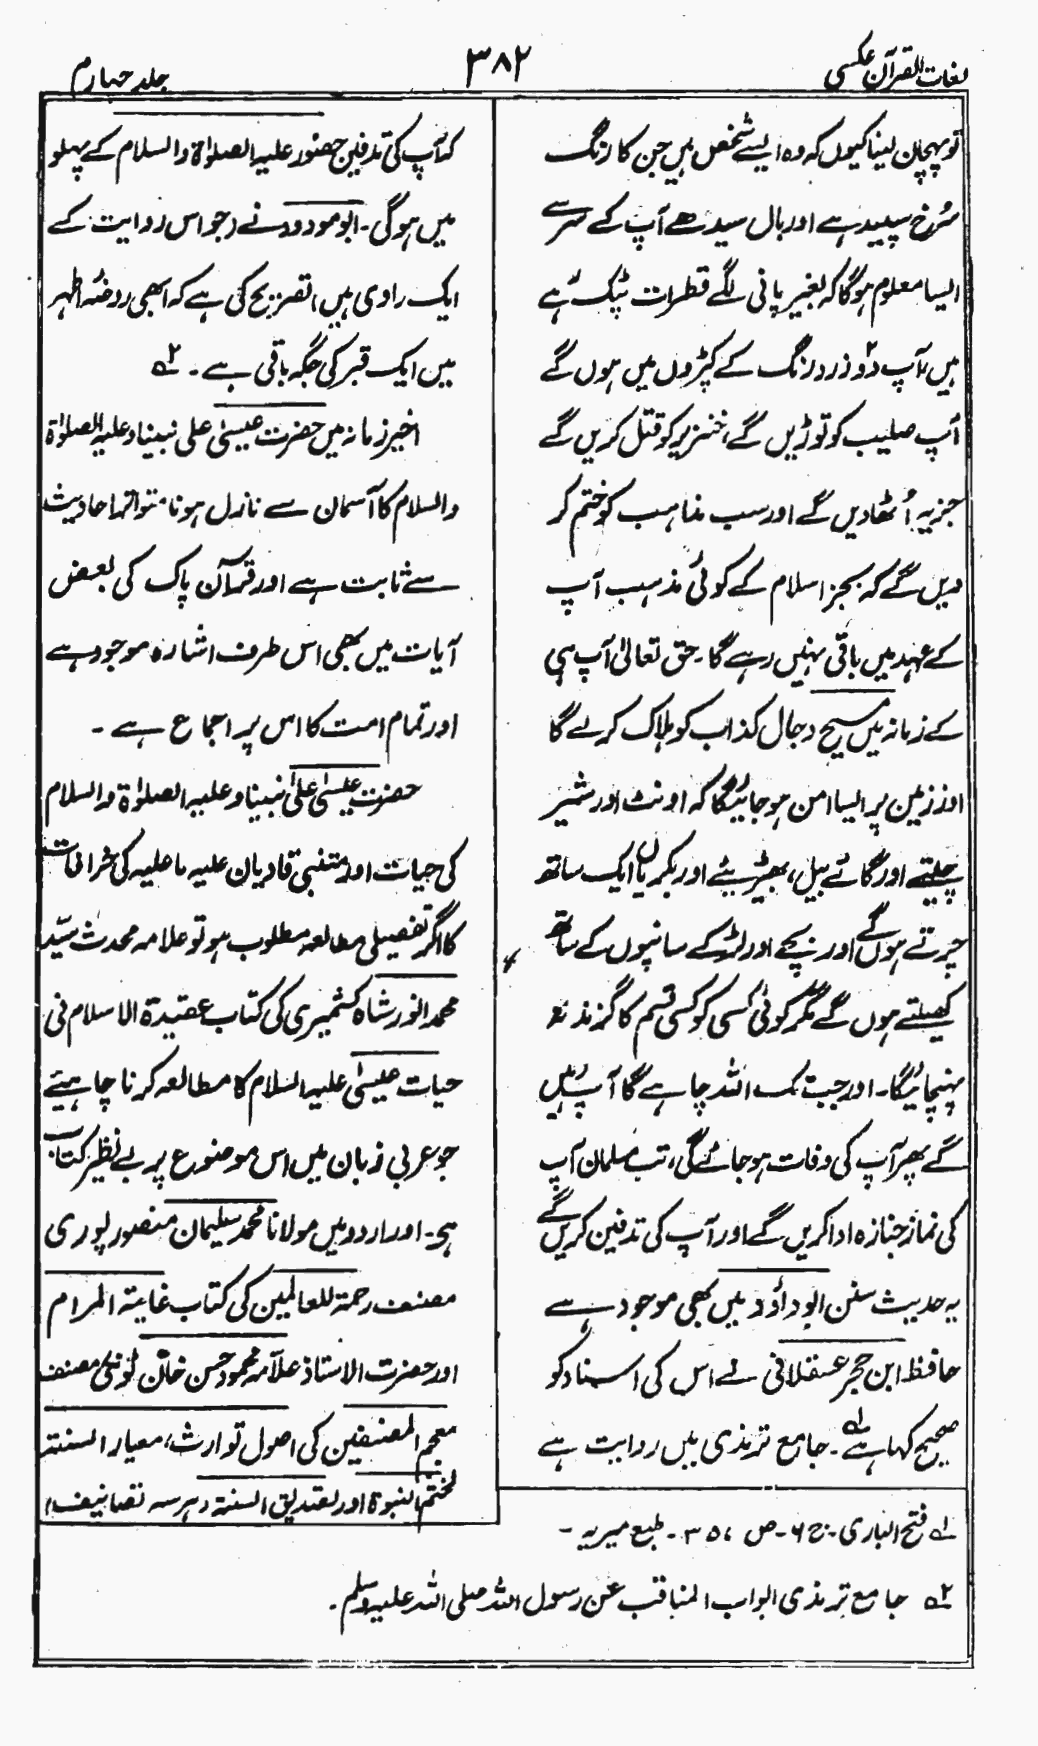 لغات القرآن عکسی
۳۸۲
جلد چہارم
تو پہچان لینا کیوں کہ وہ ایسے شخص ہیں جن کا رنگ
سُرخ سپید ہے اور بال سیدھے آپ کے سر سے
ایسا معلوم ہوگا کہ بغیر پانی لگے قطرات ٹپک رہے
ہیں، آپ دو زرد رنگ کے کپڑوں میں ہوں گے
آپ صلیب کو توڑیں گے، خنزیر کو قتل کریں گے
جزیہ اُٹھادیں گے اور سب مذاہب کو ختم کر
دیں گے کہ بجز اسلام کے کوئی مذہب آپ
کے عہد میں باقی نہیں رہے گا۔ حق تعالیٰ آپ ہی
کے زمانہ میں مسیح دجال کذاب کو ہلاک کرے گا
اور زمین پر ایسا امن ہوجائیگا کہ اونٹ اور شیر
چیتے اور گائے بیل، بھیڑیئے اور بکریاں ایک ساتھ
چرتے ہوں گے اور بچے اور لڑکے سانپوں کے ساتھ
کھیلتے ہوں گے مگر کوئی کسی کو کسی قسم کا گزند نہ
پہنچائیگا۔ اور جب تک اللہ چاہے گا آپ رہیں
گے پھر آپ کی وفات ہوجائے گی، تب مسلمان آپ
کی نماز جنازہ ادا کریں گے اور آپ کی تدفین کریں گے
یہ حدیث سنن ابوداؤد میں بھی موجود ہے
حافظ ابن حجر عسقلانی نے اس کی اسناد کو
صحیح کہا ہے ۱؎۔ جامع ترمذی میں روایت ہے
کہ آپ کی تدفین حضور علیہ الصلوٰۃ والسلام کے پہلو
میں ہوگی۔ ابومودود نے (جو اس روایت کے
ایک راوی ہیں) تصریح کی ہے کہ ابھی روضہ اطہر
میں ایک قبر کی جگہ باقی ہے۔ ۲؎
اخیر زمانہ میں حضرت عیسیٰ علی نبینا وعلیہ الصلوٰۃ
والسلام کا آسمان سے نازل ہونا متواتر احادیث
سے ثابت ہے اور قرآن پاک کی بعض
آیات میں بھی اس طرف اشارہ موجود ہے
اور تمام امت کا اس پر اجماع ہے۔
حضرت عیسیٰ علیٰ نبینا وعلیہ الصلوٰۃ والسلام
کی حیات اور متنبی قادیان علیہ ما علیہ کی خرافات
کا اگر تفصیلی مطالعہ مطلوب ہو تو علامہ محدث سیّد
محمد انور شاہ کشمیری کی کتاب عقیدۃ الاسلام فی
حیات عیسیٰ علیہ السلام کا مطالعہ کرنا چاہیئے
جو عربی زبان میں اس موضوع پر بے نظیر کتاب
ہی۔ اور اردو میں مولانا محمد سلیمان منصور پوری
مصنف رحمۃ للعالمین کی کتاب غایۃ المرام
اور حضرت الاستاذ علامہ محمود حسن خاں ٹونکی مصنف
معجم المصنفین کی اصول توارث، معیار السنۃ
لختم النبوۃ اور تصدیق السنۃ (ہر سہ تصانیف)
۱؎ فتح الباری۔ ج ۶۔ ص ۳۵۷۔ طبع میریہ۔
۲؎ جامع ترمذی ابواب المناقب عن رسول اللہ صلی اللہ علیہ وسلم۔